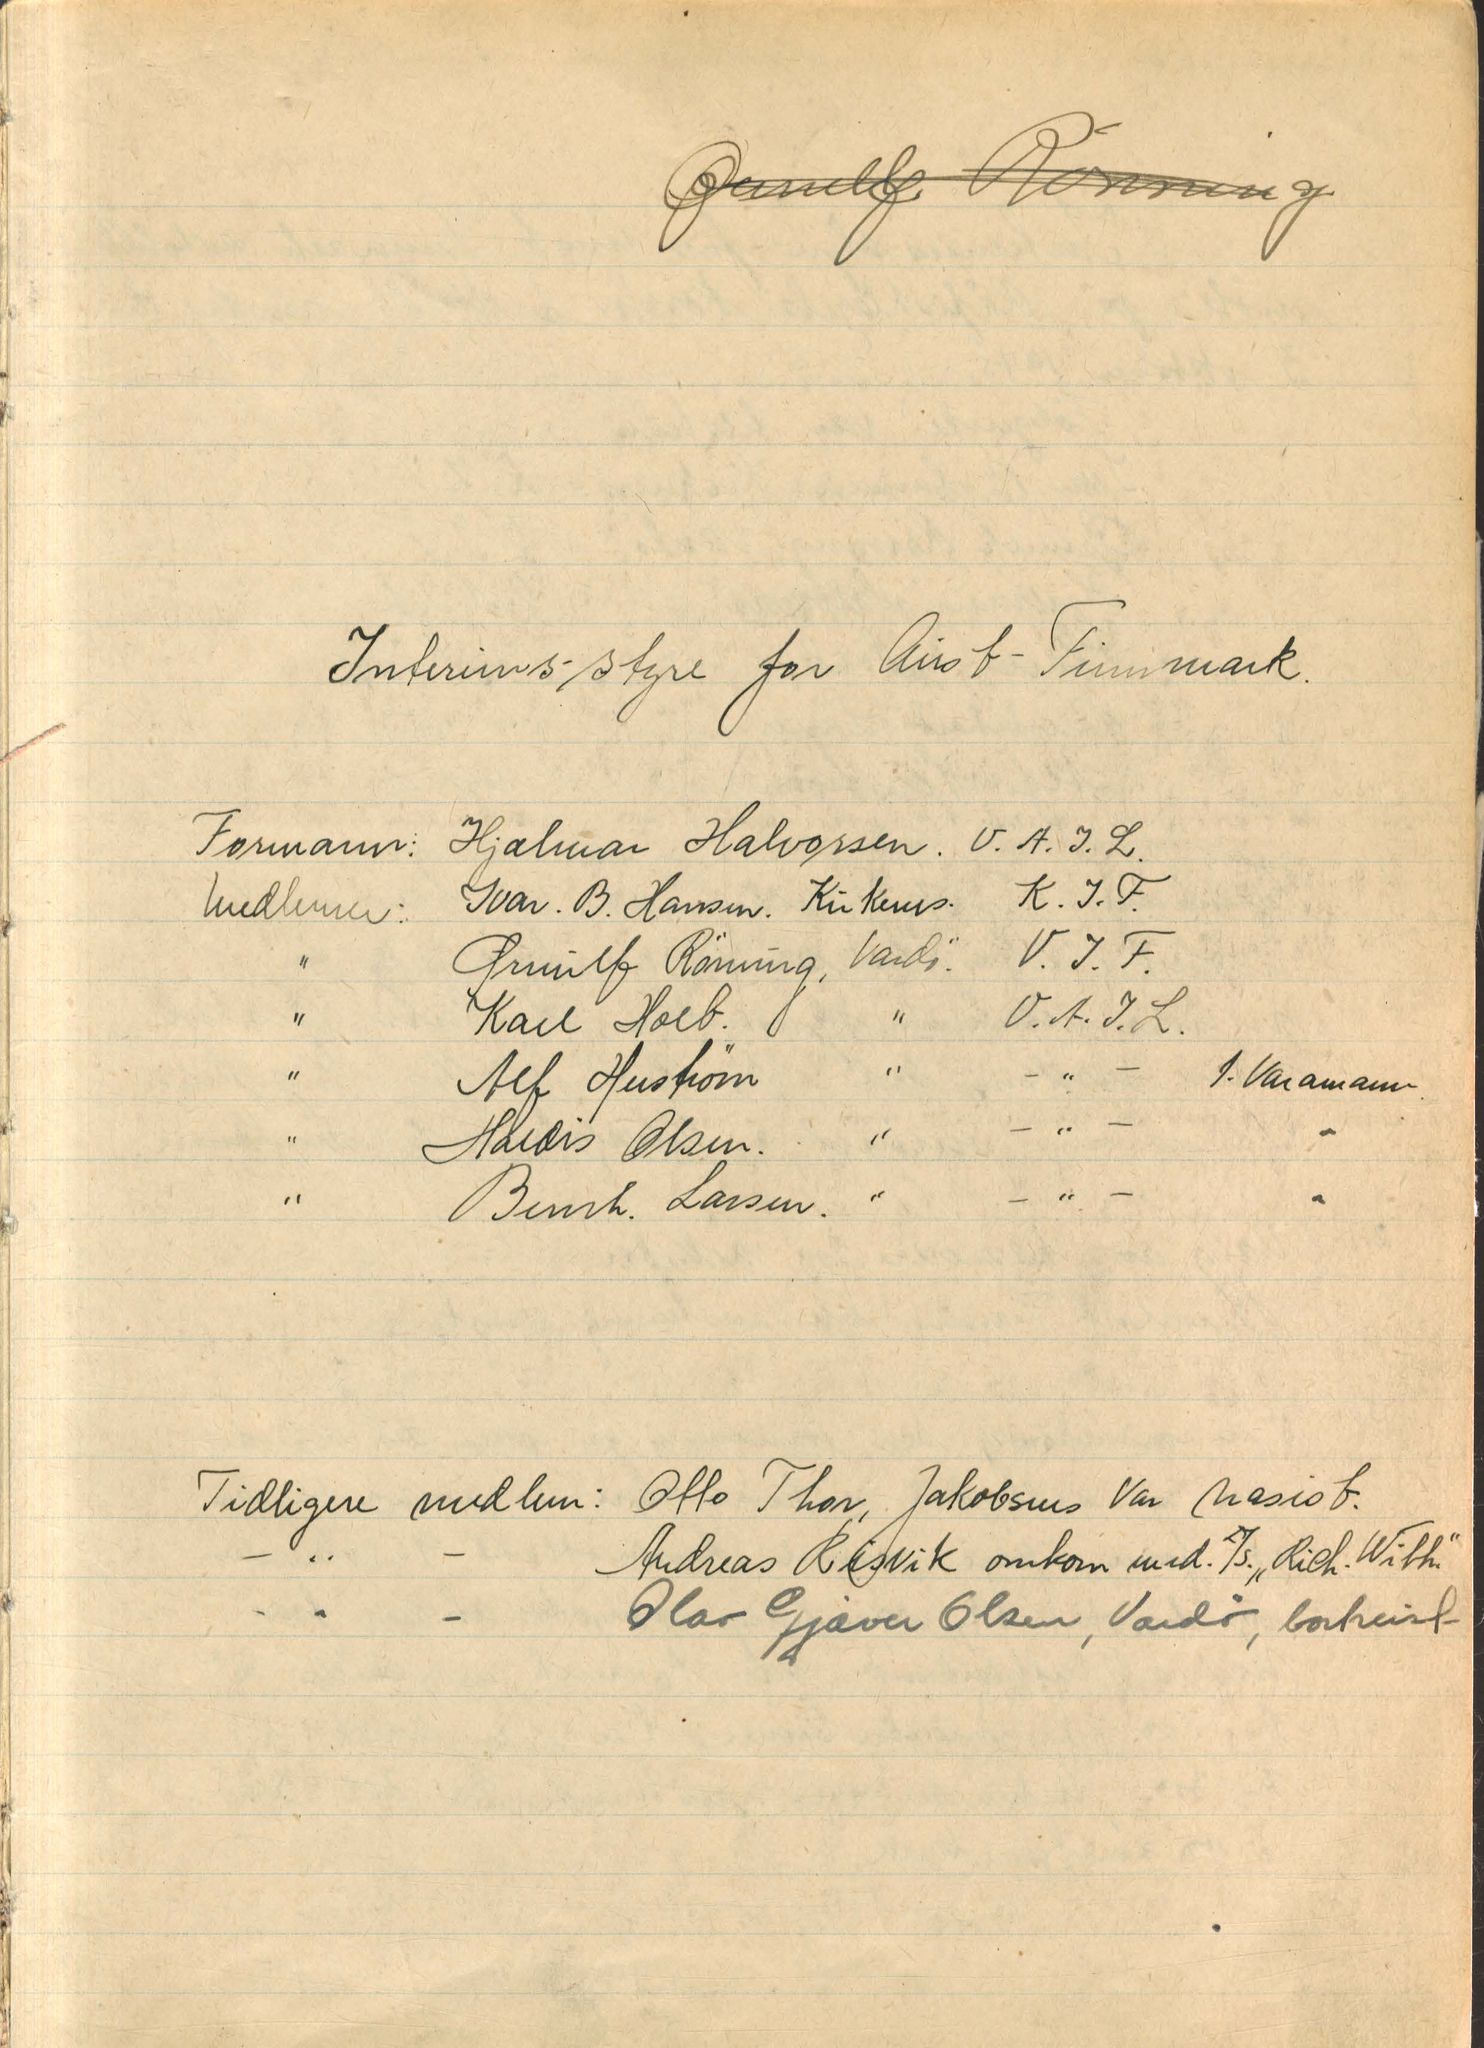 Ørnulf Rönning
Interims-styre for Aust-Finnmark.
Formann: Hjalmar Halvorsen. V. A. I. L.
Medlemer: Ivar. B. Hansen. Kirkenes. K. I. F.
" Ørnulf Rönning, Vardö. V. I. F.
" Karl Holt. " V. A. I. L.
" Alf " - " - 1. Varamann.
" Haldis Olsen. " - " - "
" Bernh. Larsen. " - " - "
Tidligere medlem: Otto Thor, Jakobsnes var nasist.
- " - Andreas Risvik omkom med. D/S. „Rich. With"
- " - Olav Gjæver Olsen, Vardö, bortreist